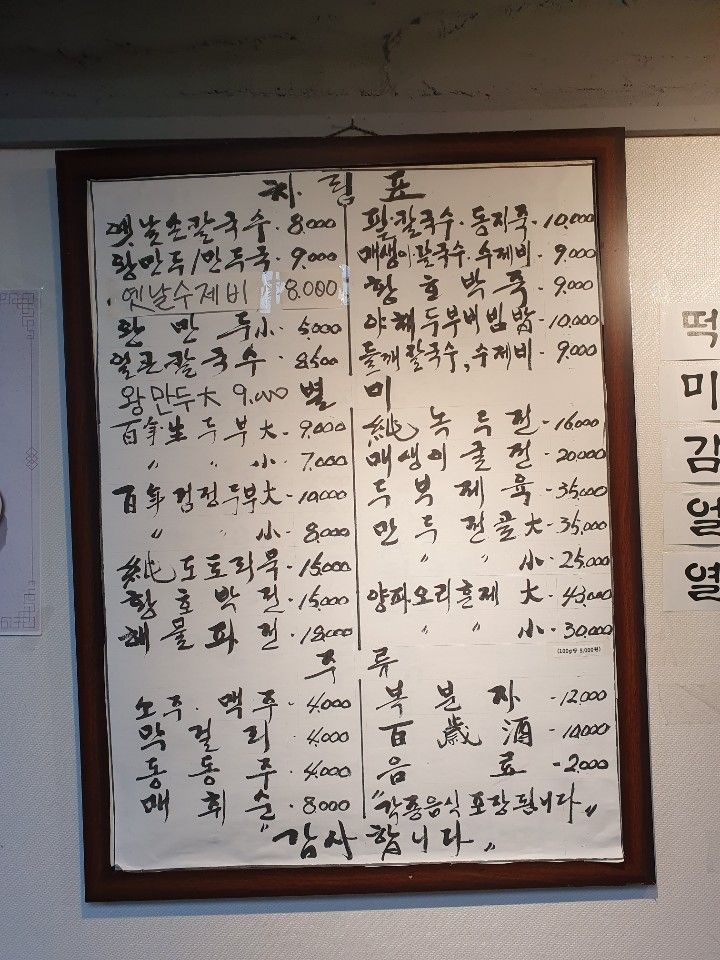 차림표
옛날손칼국수 - 8,000
왕만두/만두국 - 9,000
옛날수제비 8,000
왕만두小 - 5,000
얼큰칼국수 - 8,500
왕만두大 9,000
팥칼국수.동지죽 - 10,000
매생이칼국수.수제비 - 9,000
황호박죽 - 9,000
야채두부비빔밥 - 10,000
들깨칼국수,수제비 - 9,000
별미
百年生두부大 - 9,000
〃 〃 小 - 7,000
百年검정두부大 - 10,000
〃 〃 小 - 8,000
純도토리묵 - 15,000
황호박전 - 15,000
해물파전 - 18,000
純녹두전 - 16,000
매생이굴전 - 20,000
두부제육 - 35,000
만두전골大 - 35,000
〃 〃 小 - 25,000
양파오리훈제 大 - 43,000
〃 〃 小 - 30,000
(100g당 5,000원)
주류
소주.맥주 - 4,000
막걸리 - 4,000
동동주 - 4,000
매취순 - 8,000
복분자 - 12,000
百歲酒 - 10,000
음료 - 2,000
"각종음식 포장됩니다"
"감사합니다"
떡
미
감
얼
열